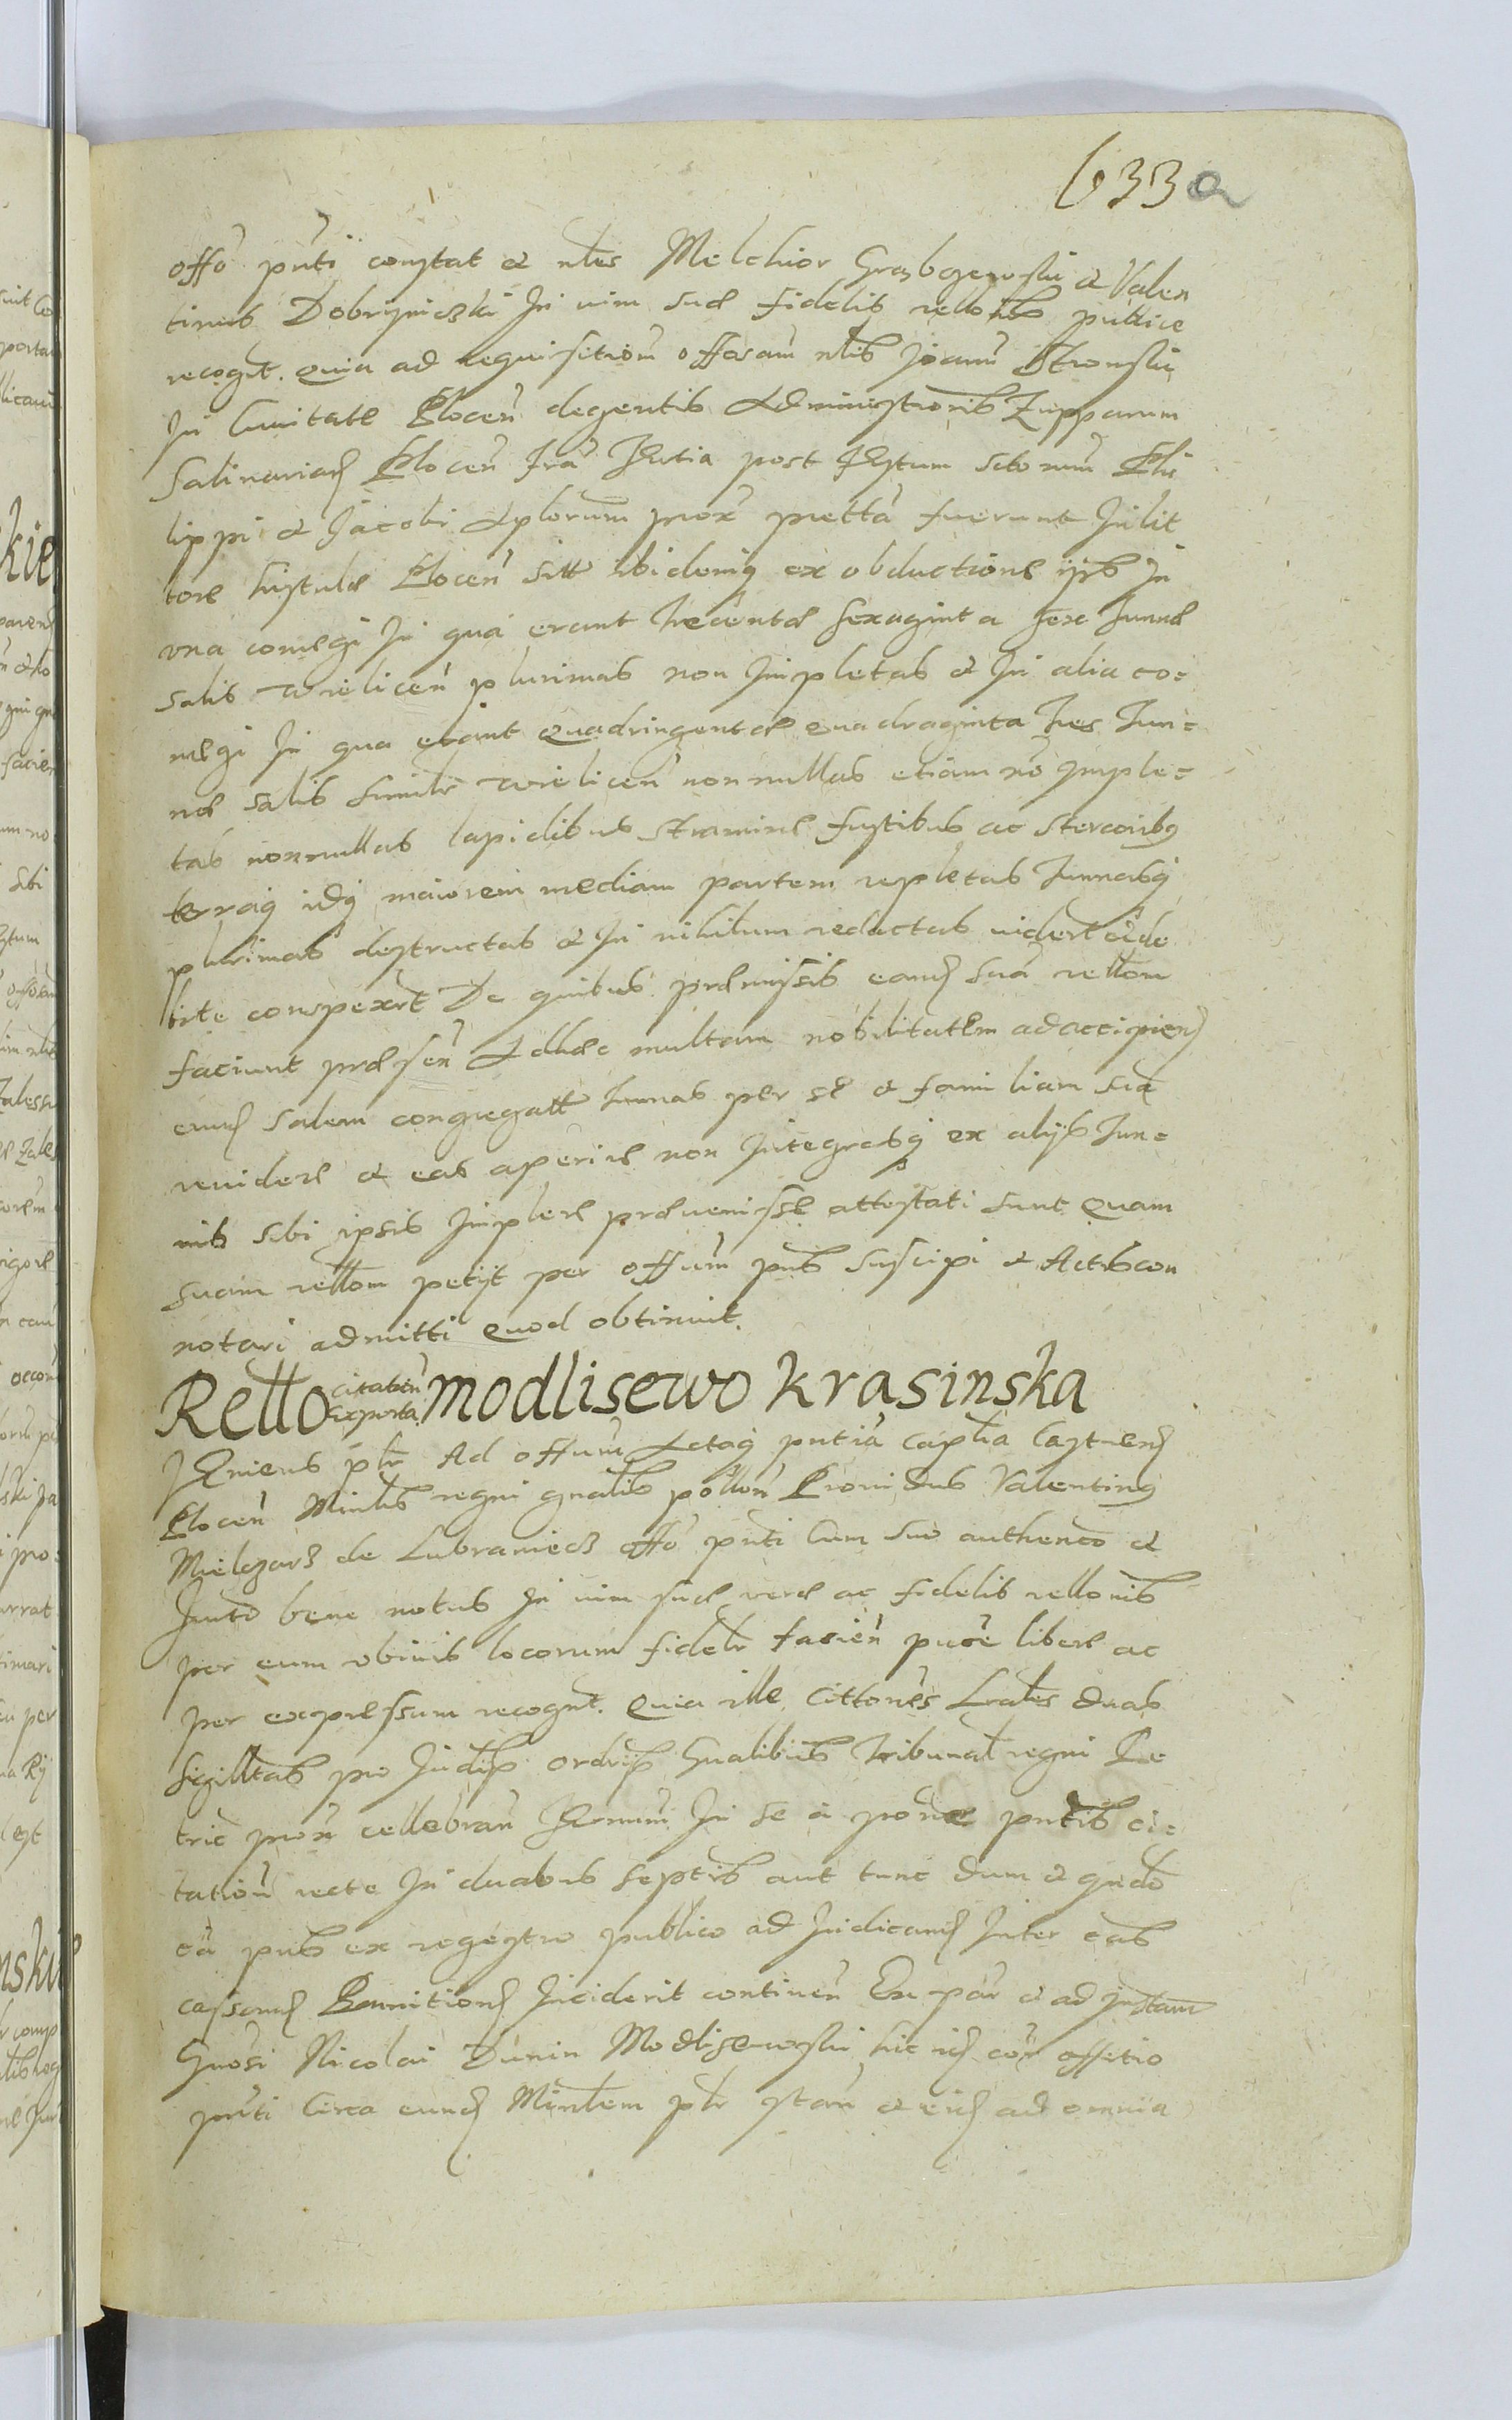 633a
offo pnti constat et nles Melchior Grabczewski et Valen
tinus Dobrzynieczki In vim suæ fidelis rellonis publice
recognt. Quia ad requisitiom offosam nlis Joanni Stronski
In Civitate Plocen degentis Administroris Zupparum
Salinariaꝝ Plocen fra Tertia post festum sctorum Phi
lippi et Jacobi Aplorum prox prætta fuerunt In lit
tore Fistulæ Plocen sitt ibidemq ex obductione ijus In
una comegi In qua erant Trecentæ sexaginta sex Tunnæ
salis Wielicen plurimas non Impletas et In alia co=
megi In qua erant Quadringentæ quadraginta tres Tun=
næ salis similr Wielicen nonnullas etiam no Imple=
tas nonnullas lapidibus stramine fustibus ac stercoribq
terraq idq maiorem mediam partem repletas Tunnasq
plurimas destructas et In nihilum redactas videre et de
bite conspexert De quibus præmissis eand sua rellom
faciunt præsen Adhæc multam nobilitatem ad accipiend
eund salem congregatt Tunnas per se et familiam sua
revidere et eas aperire non Integrasq ex alijs Tun=
nis sibi ipsis Implere prævenisse attestati sunt Quam
suam rellom petijt per offum pns suscipi et Actis con
notari admitti Quod obtinuit.
Rello citaten exporta. Modlisewo Krasinska
Veniens plr Ad offum Actaq pntia Caplia Castrend
Plocen Minlis regni gnalis pollon Providus Valentinq
Mielczarz de Lubraniecz offo pnti Cum suo authenco et
Invto bene notus In vim suæ veræ ac fidelis rellonis
per eum obivis locorum fidelr facien puce libere ac
per expressum recognt. Quia ille Cittones Lrales duas
sigilltas pro Judijs ordrijs Gnalibus Tribunal regni Pe
tric prox cellebran Termin In se a ponæ pntis ci=
tation recte In duabus septis aut tunc dum et qndo
ca pns ex regestro publico ad Iudicand Inter eas
causand Punitiond Inciderit continen Ex par et ad Instam
Gnosi Nicolai Dunin Modlisewski hic id cor offitio
pnti Circa eund Minlem plr stan et eid ad omnia